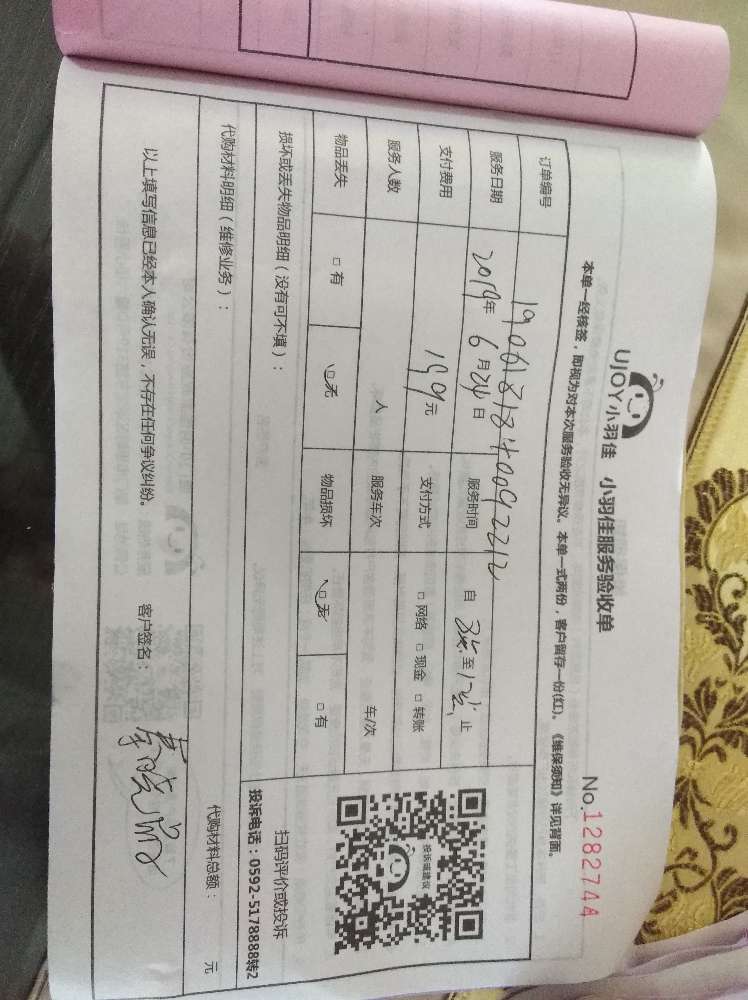 UJOY小羽佳 小羽佳服务验收单 No.1282744
本单一经核签，即视为对本次服务验收无异议。本单一式两份，客户留存一份(红)。《维保须知》详见背面。
订单编号 1906181840092212
服务日期 2019年6月24日 服务时间 自 8点 至 12点 止
支付费用 199元 支付方式 □网络 □现金 □转账
服务人数 人 服务车次 车/次
物品丢失 □有 ☑无 物品损坏 ☑无 □有
投诉或建议
扫码评价或投诉
投诉电话：0592-5178888转2
损坏或丢失物品明细（没有可不填）：
代购材料明细（维修业务）： 代购材料总额： 元
以上填写信息已经本人确认无误，不存在任何争议纠纷。 客户签名：